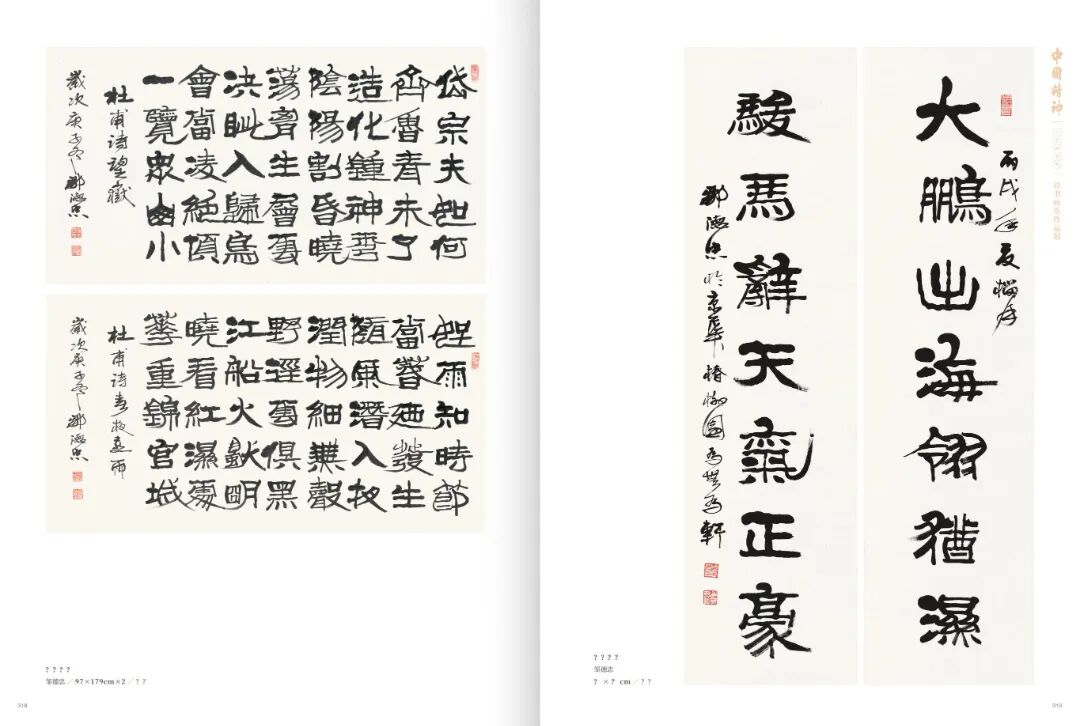 岱宗夫如何
齊魯青未了
造化鍾神秀
陰陽割昏曉
蕩胷生曾雲
決眦入歸鳥
會當凌絕頂
一覽眾山小
杜甫诗望嶽
歲次庚子冬 鄒德忠
好雨知時節
當春迺發生
隨風潛入夜
潤物細無聲
野逕雲俱黑
江船火獻明
曉看紅濕處
華重錦官城
杜甫诗春夜喜雨
歲次庚子冬 鄒德忠
????
邹德忠／97×179cm×2／??
318
中國精神
诗书画乐作品展
大鵬出海翎猶濕
丙戌年夏榴月
駿馬辭天氣正豪
鄒德忠於京華椿樹園
????
邹德忠
? ×? cm／??
319